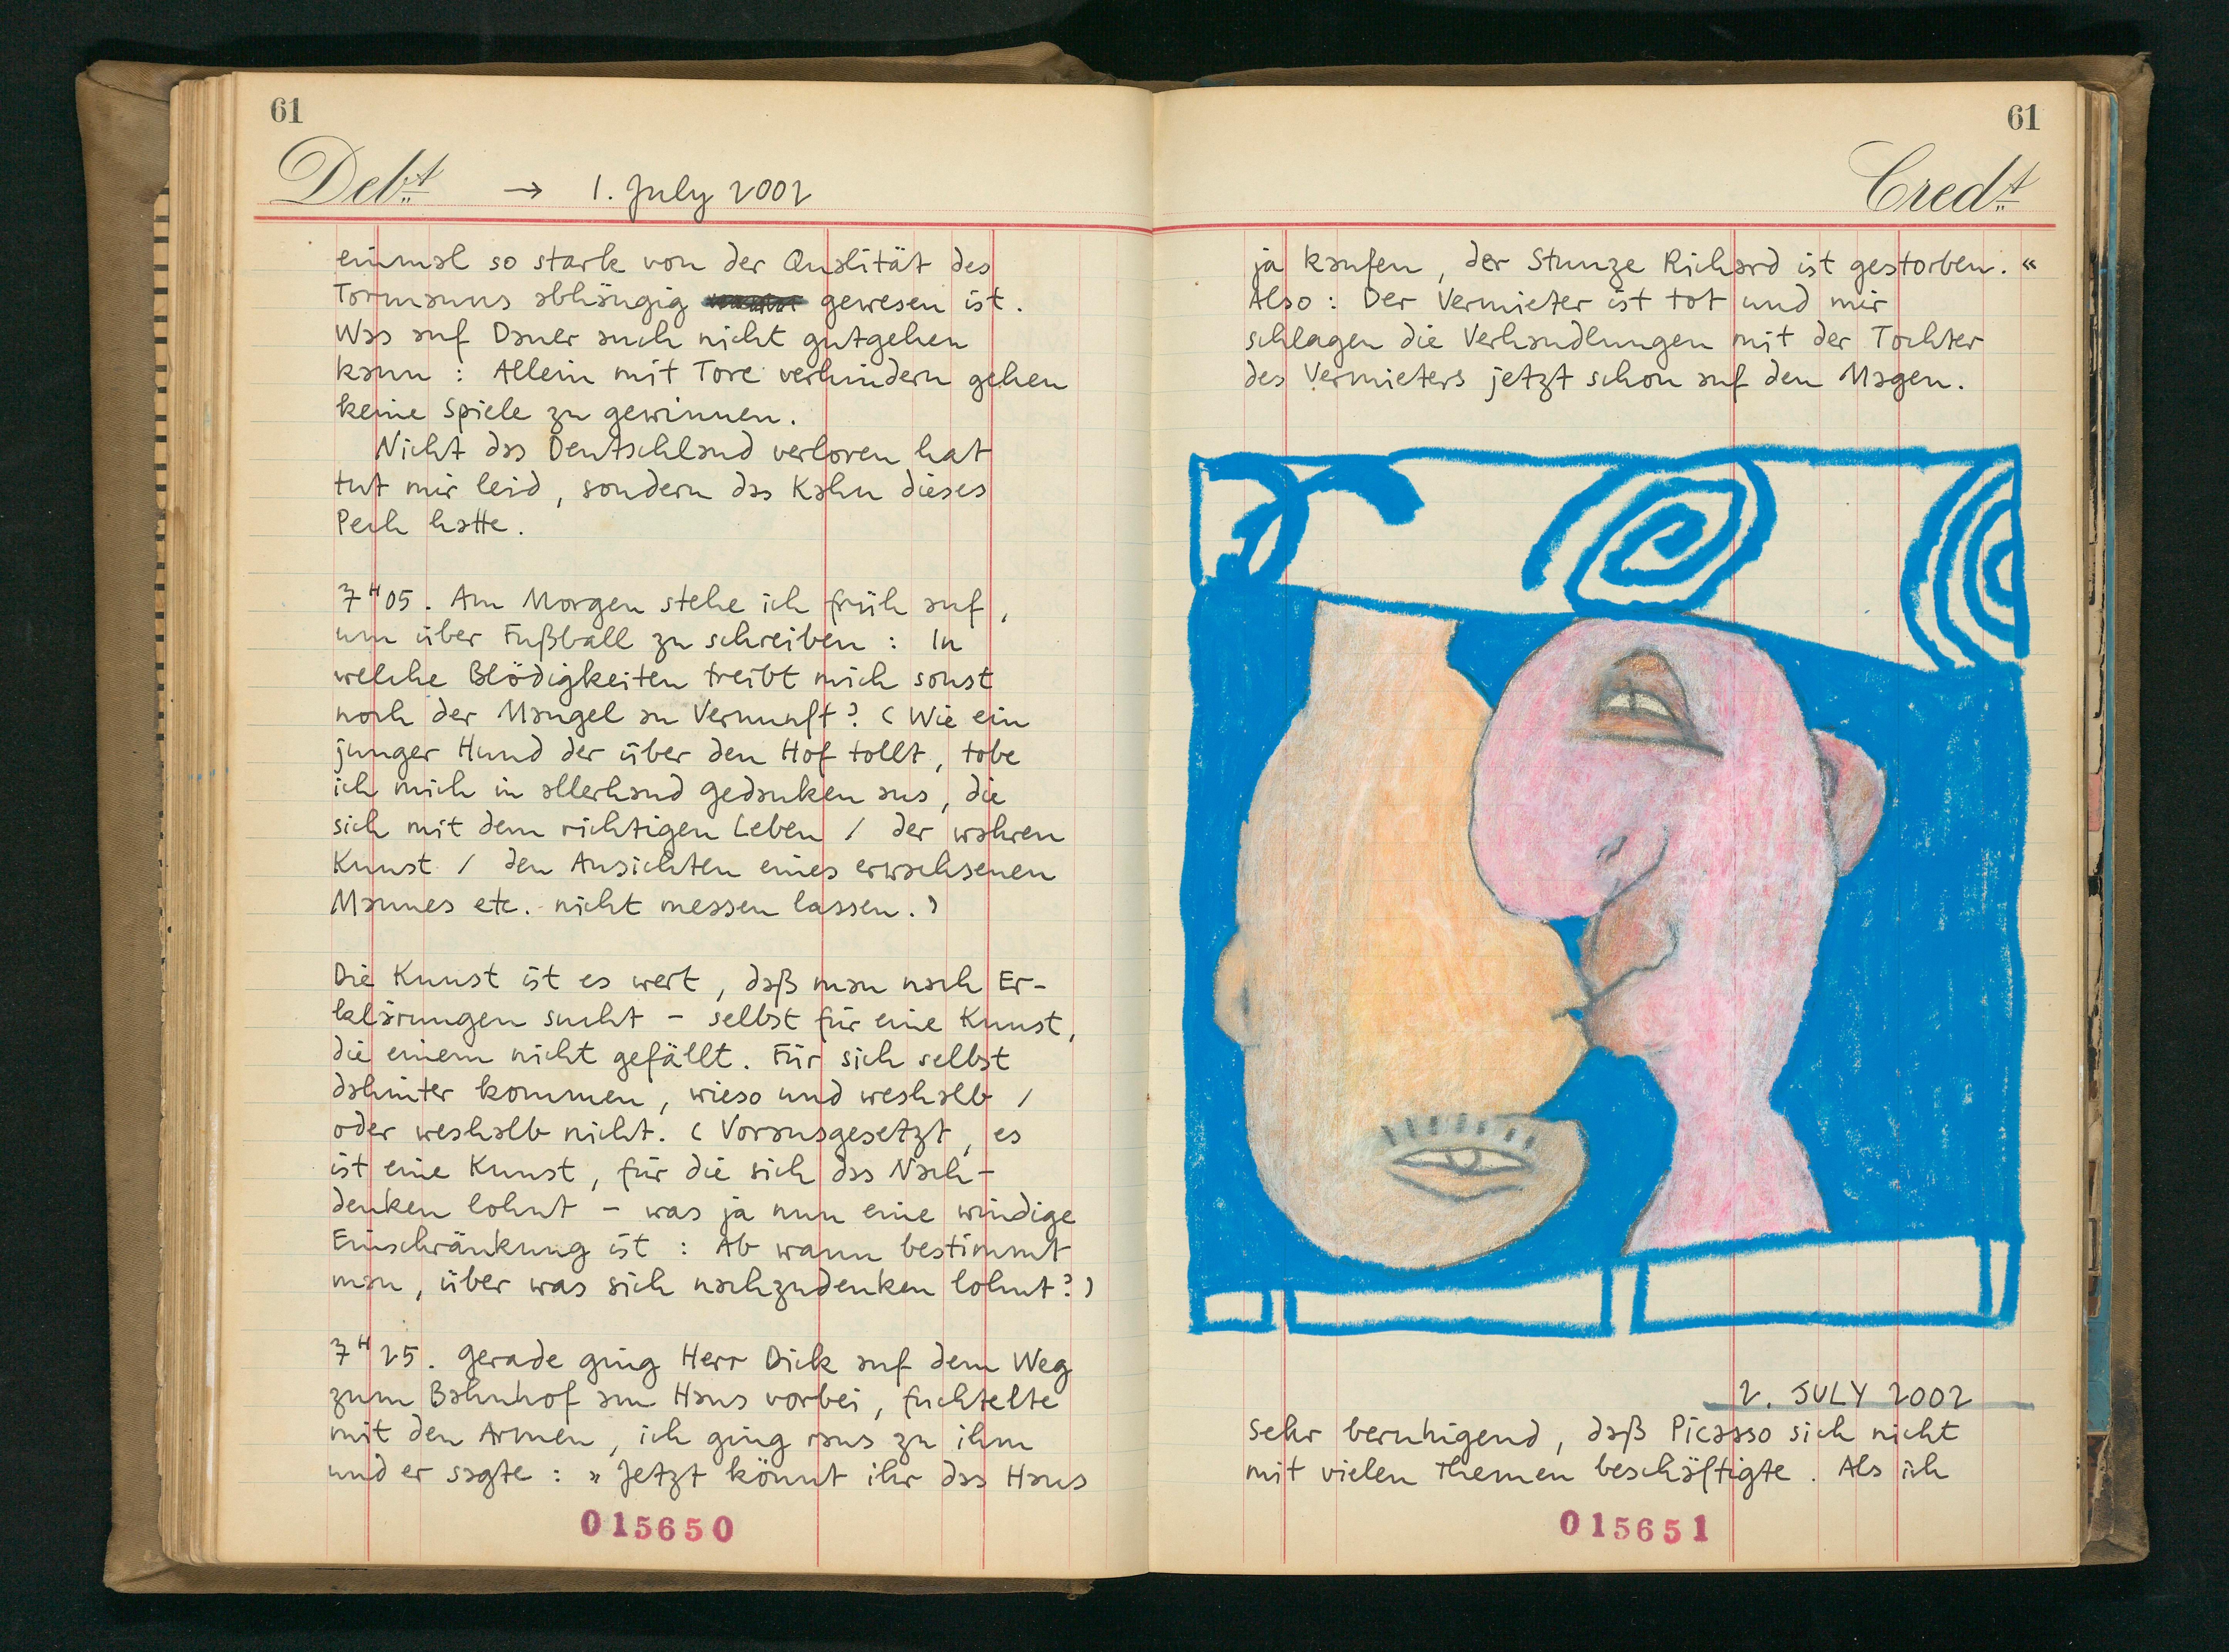 61
Debt → 1. July 2002
einmal so stark von der Qualität des
Tormanns abhängig gewesen ist.
Was auf Dauer auch nicht gutgehen
kann : Allein mit Tore verhindern gehen
keine Spiele zu gewinnen.
Nicht das Deutschland verloren hat
tut mir leid, sondern das Kahn dieses
Pech hatte.
7H05. Am Morgen stehe ich früh auf,
um über Fußball zu schreiben : In
welche Blödigkeiten treibt mich sonst
noch der Mangel an Vernunft? (Wie ein
junger Hund der über den Hof tollt, tobe
ich mich in allerhand Gedanken aus, die
sich mit dem richtigen Leben / der wahren
Kunst / den Ansichten eines erwachsenen
Mannes etc. nicht messen lassen.)
Die Kunst ist es wert, daß man nach Er-
klärungen sucht – selbst für eine Kunst,
die einem nicht gefällt. Für sich selbst
dahinter kommen, wieso und weshalb /
oder weshalb nicht. (Vorausgesetzt, es
ist eine Kunst, für die sich das Nach-
denken lohnt – was ja nun eine windige
Einschränkung ist : Ab wann bestimmt
man, über was sich nachzudenken lohnt?)
7H25. Gerade ging Herr Dick auf dem Weg
zum Bahnhof am Haus vorbei, fuchtelte
mit den Armen, ich ging raus zu ihm
und er sagte : »Jetzt könnt ihr das Haus
015650
61
Credt
ja kaufen, der Stunze Richard ist gestorben.«
Also : Der Vermieter ist tot und mir
schlagen die Verhandlungen mit der Tochter
des Vermieters jetzt schon auf den Magen.
2. JULY 2002
Sehr beruhigend, daß Picasso sich nicht
mit vielen Themen beschäftigte. Als ich
015651